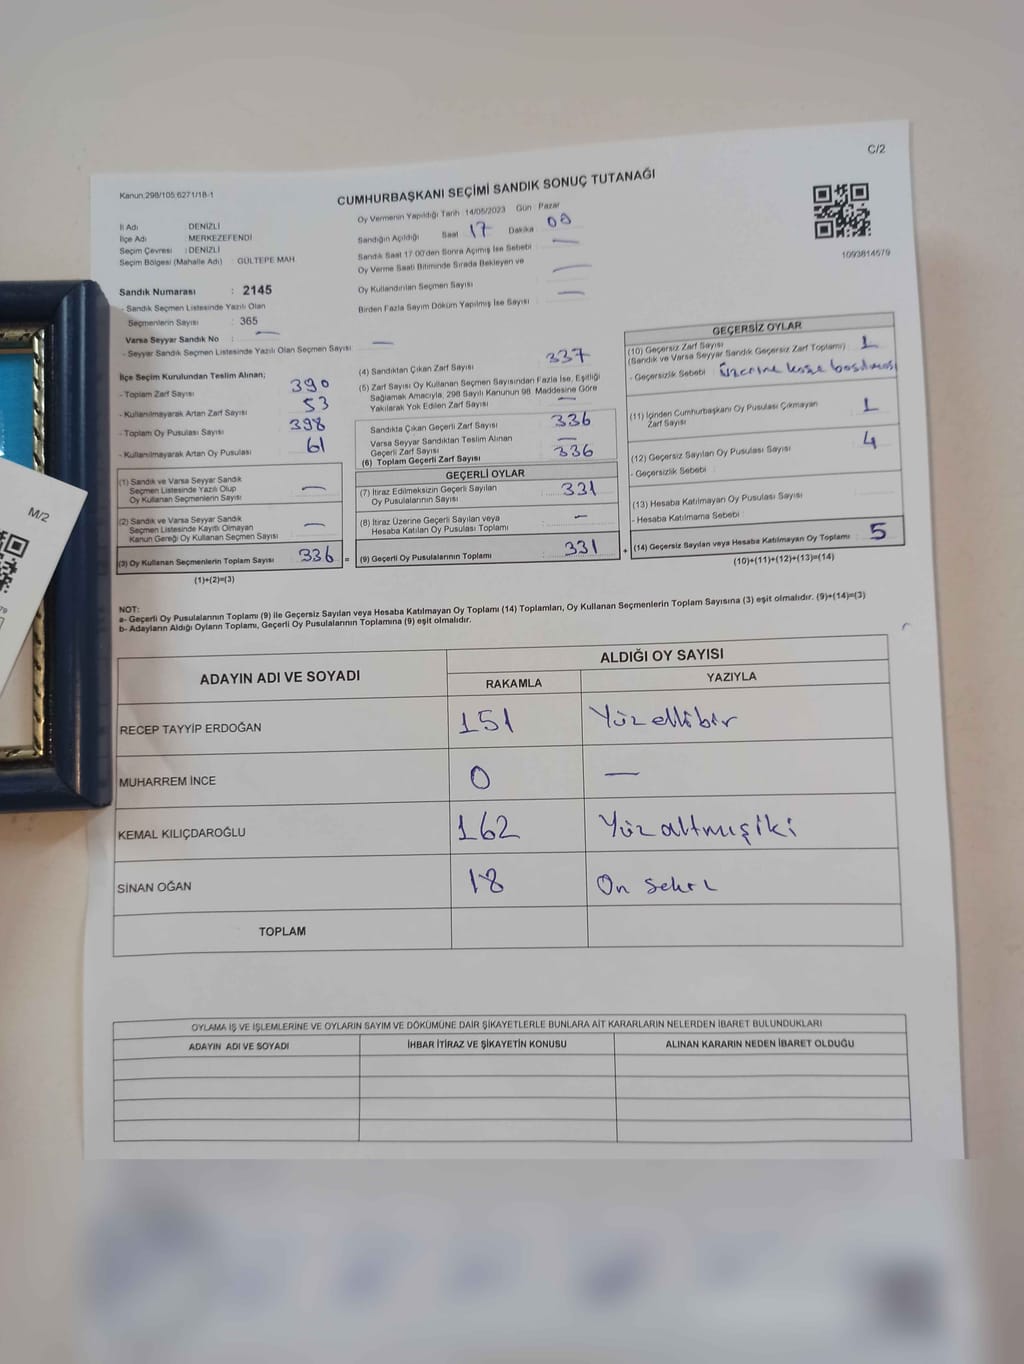 C/2
Kanun.298/105.6271/18-1
CUMHURBAŞKANI SEÇİMİ SANDIK SONUÇ TUTANAĞI
İl Adı DENİZLİ
İlçe Adı : MERKEZEFENDİ
Seçim Çevresi : DENİZLİ
Seçim Bölgesi (Mahalle Adı) : GÜLTEPE MAH
Oy Vermenin Yapıldığı Tarih 14/05/2023 Gün Pazar
Sandığın Açıldığı Saat 17 Dakika 00
Sandık Saat 17:00'den Sonra Açımış İse Sebebi —
Oy Verme Saati Bitiminde Sırada Bekleyen ve
Oy Kullandırılan Seçmen Sayısı —
Birden Fazla Sayım Döküm Yapılmış İse Sayısı —
1093814579
Sandık Numarası : 2145
- Sandık Seçmen Listesinde Yazılı Olan
Seçmenlerin Sayısı : 365
Varsa Seyyar Sandık No : —
- Seyyar Sandık Seçmen Listesinde Yazılı Olan Seçmen Sayısı —
İlçe Seçim Kurulundan Teslim Alınan;
- Toplam Zarf Sayısı 390
- Kullanılmayarak Artan Zarf Sayısı 53
- Toplam Oy Pusulası Sayısı 398
- Kullanılmayarak Artan Oy Pusulası 61
(1) Sandık ve Varsa Seyyar Sandık
Seçmen Listesinde Yazılı Olup
Oy Kullanan Seçmenlerin Sayısı —
(2) Sandık ve Varsa Seyyar Sandık
Seçmen Listesinde Kayıtlı Olmayan
Kanun Gereği Oy Kullanan Seçmen Sayısı —
(3) Oy Kullanan Seçmenlerin Toplam Sayısı 336 =
(1)+(2)=(3)
(4) Sandıktan Çıkan Zarf Sayısı 337
(5) Zarf Sayısı Oy Kullanan Seçmen Sayısından Fazla İse, Eşitliği
Sağlamak Amacıyla, 298 Sayılı Kanunun 98. Maddesine Göre
Yakılarak Yok Edilen Zarf Sayısı —
Sandıkta Çıkan Geçerli Zarf Sayısı 336
Varsa Seyyar Sandıktan Teslim Alınan
Geçerli Zarf Sayısı —
(6) Toplam Geçerli Zarf Sayısı 336
GEÇERLİ OYLAR
(7) İtiraz Edilmeksizin Geçerli Sayılan
Oy Pusulalarının Sayısı 331
(8) İtiraz Üzerine Geçerli Sayılan veya
Hesaba Katılan Oy Pusulası Toplamı —
(9) Geçerli Oy Pusulalarının Toplamı 331 +
GEÇERSİZ OYLAR
(10) Geçersiz Zarf Sayısı
(Sandık ve Varsa Seyyar Sandık Geçersiz Zarf Toplamı) 1
- Geçersizlik Sebebi : Üzerine kaşe basılmış
(11) İçinden Cumhurbaşkanı Oy Pusulası Çıkmayan
Zarf Sayısı 1
(12) Geçersiz Sayılan Oy Pusulası Sayısı 4
- Geçersizlik Sebebi :
(13) Hesaba Katılmayan Oy Pusulası Sayısı
- Hesaba Katılmama Sebebi :
(14) Geçersiz Sayılan veya Hesaba Katılmayan Oy Toplamı : 5
(10)+(11)+(12)+(13)=(14)
NOT:
a- Geçerli Oy Pusulalarının Toplamı (9) ile Geçersiz Sayılan veya Hesaba Katılmayan Oy Toplamı (14) Toplamları, Oy Kullanan Seçmenlerin Toplam Sayısına (3) eşit olmalıdır. (9)+(14)=(3)
b- Adayların Aldığı Oyların Toplamı, Geçerli Oy Pusulalarının Toplamına (9) eşit olmalıdır.
ADAYIN ADI VE SOYADI ALDIĞI OY SAYISI
RAKAMLA YAZIYLA
RECEP TAYYİP ERDOĞAN 151 Yüz ellibir
MUHARREM İNCE 0 —
KEMAL KILIÇDAROĞLU 162 Yüz altmışiki
SİNAN OĞAN 18 On sekiz
TOPLAM
OYLAMA İŞ VE İŞLEMLERİNE VE OYLARIN SAYIM VE DÖKÜMÜNE DAİR ŞİKAYETLERLE BUNLARA AİT KARARLARIN NELERDEN İBARET BULUNDUKLARI
ADAYIN ADI VE SOYADI İHBAR İTİRAZ VE ŞİKAYETİN KONUSU ALINAN KARARIN NEDEN İBARET OLDUĞU
M/2